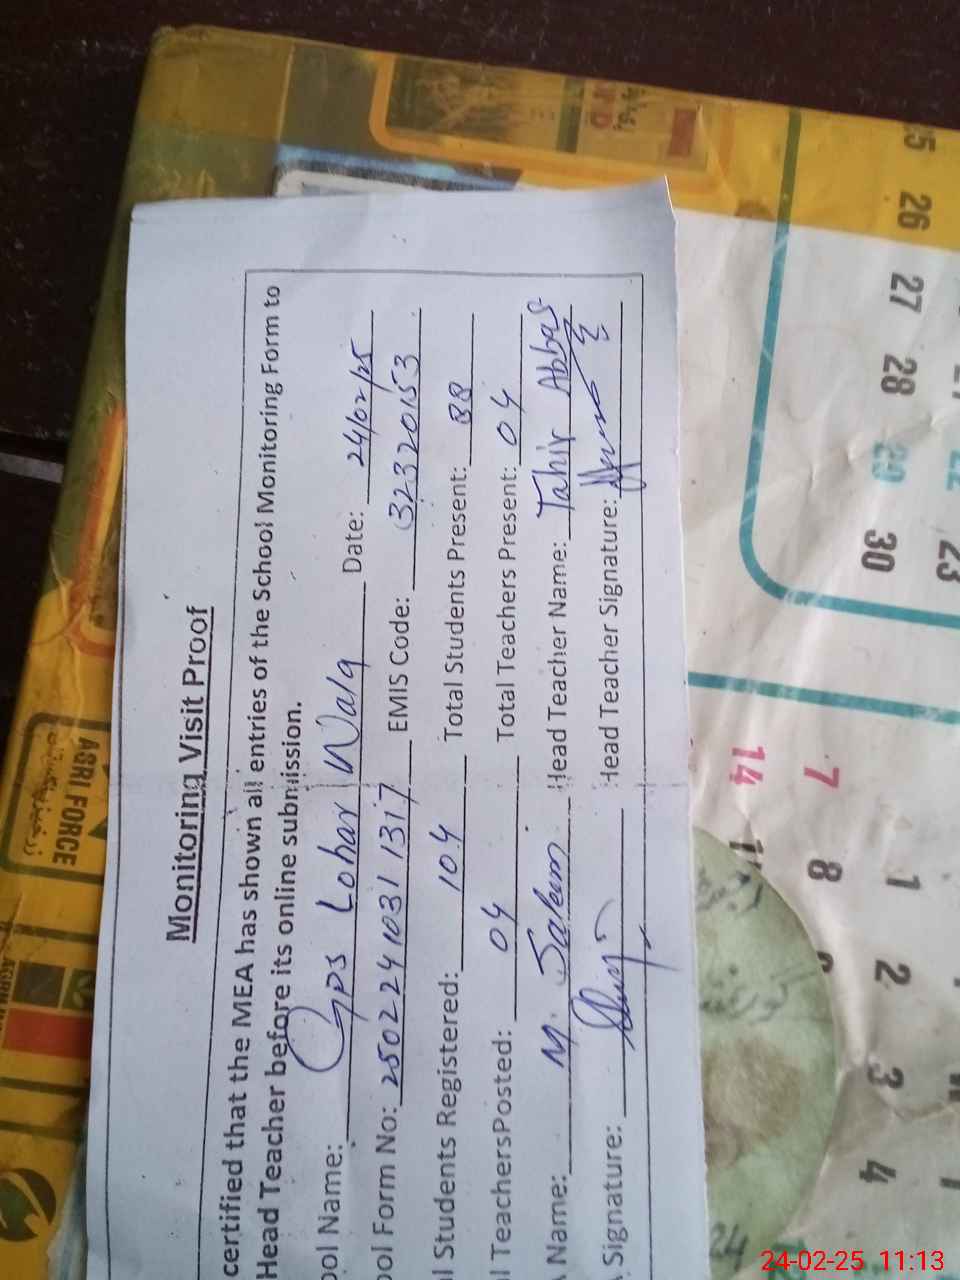 Monitoring Visit Proof
certified that the MEA has shown all entries of the School Monitoring Form to
Head Teacher before its online submission.
ool Name: Gps Lohar Wala Date: 24/02/25
ool Form No: 250224103113 17 EMIS Code: 32320153
l Students Registered: 104 Total Students Present: 88
l TeachersPosted: 04 Total Teachers Present: 04
Name: M. Saleem Head Teacher Name: Tahir Abbas
Signature: Head Teacher Signature:
AGRI FORCE
25
26
27
28
29
30
22
23
14
7
8
1
2
3
4
24
24-02-25 11:13